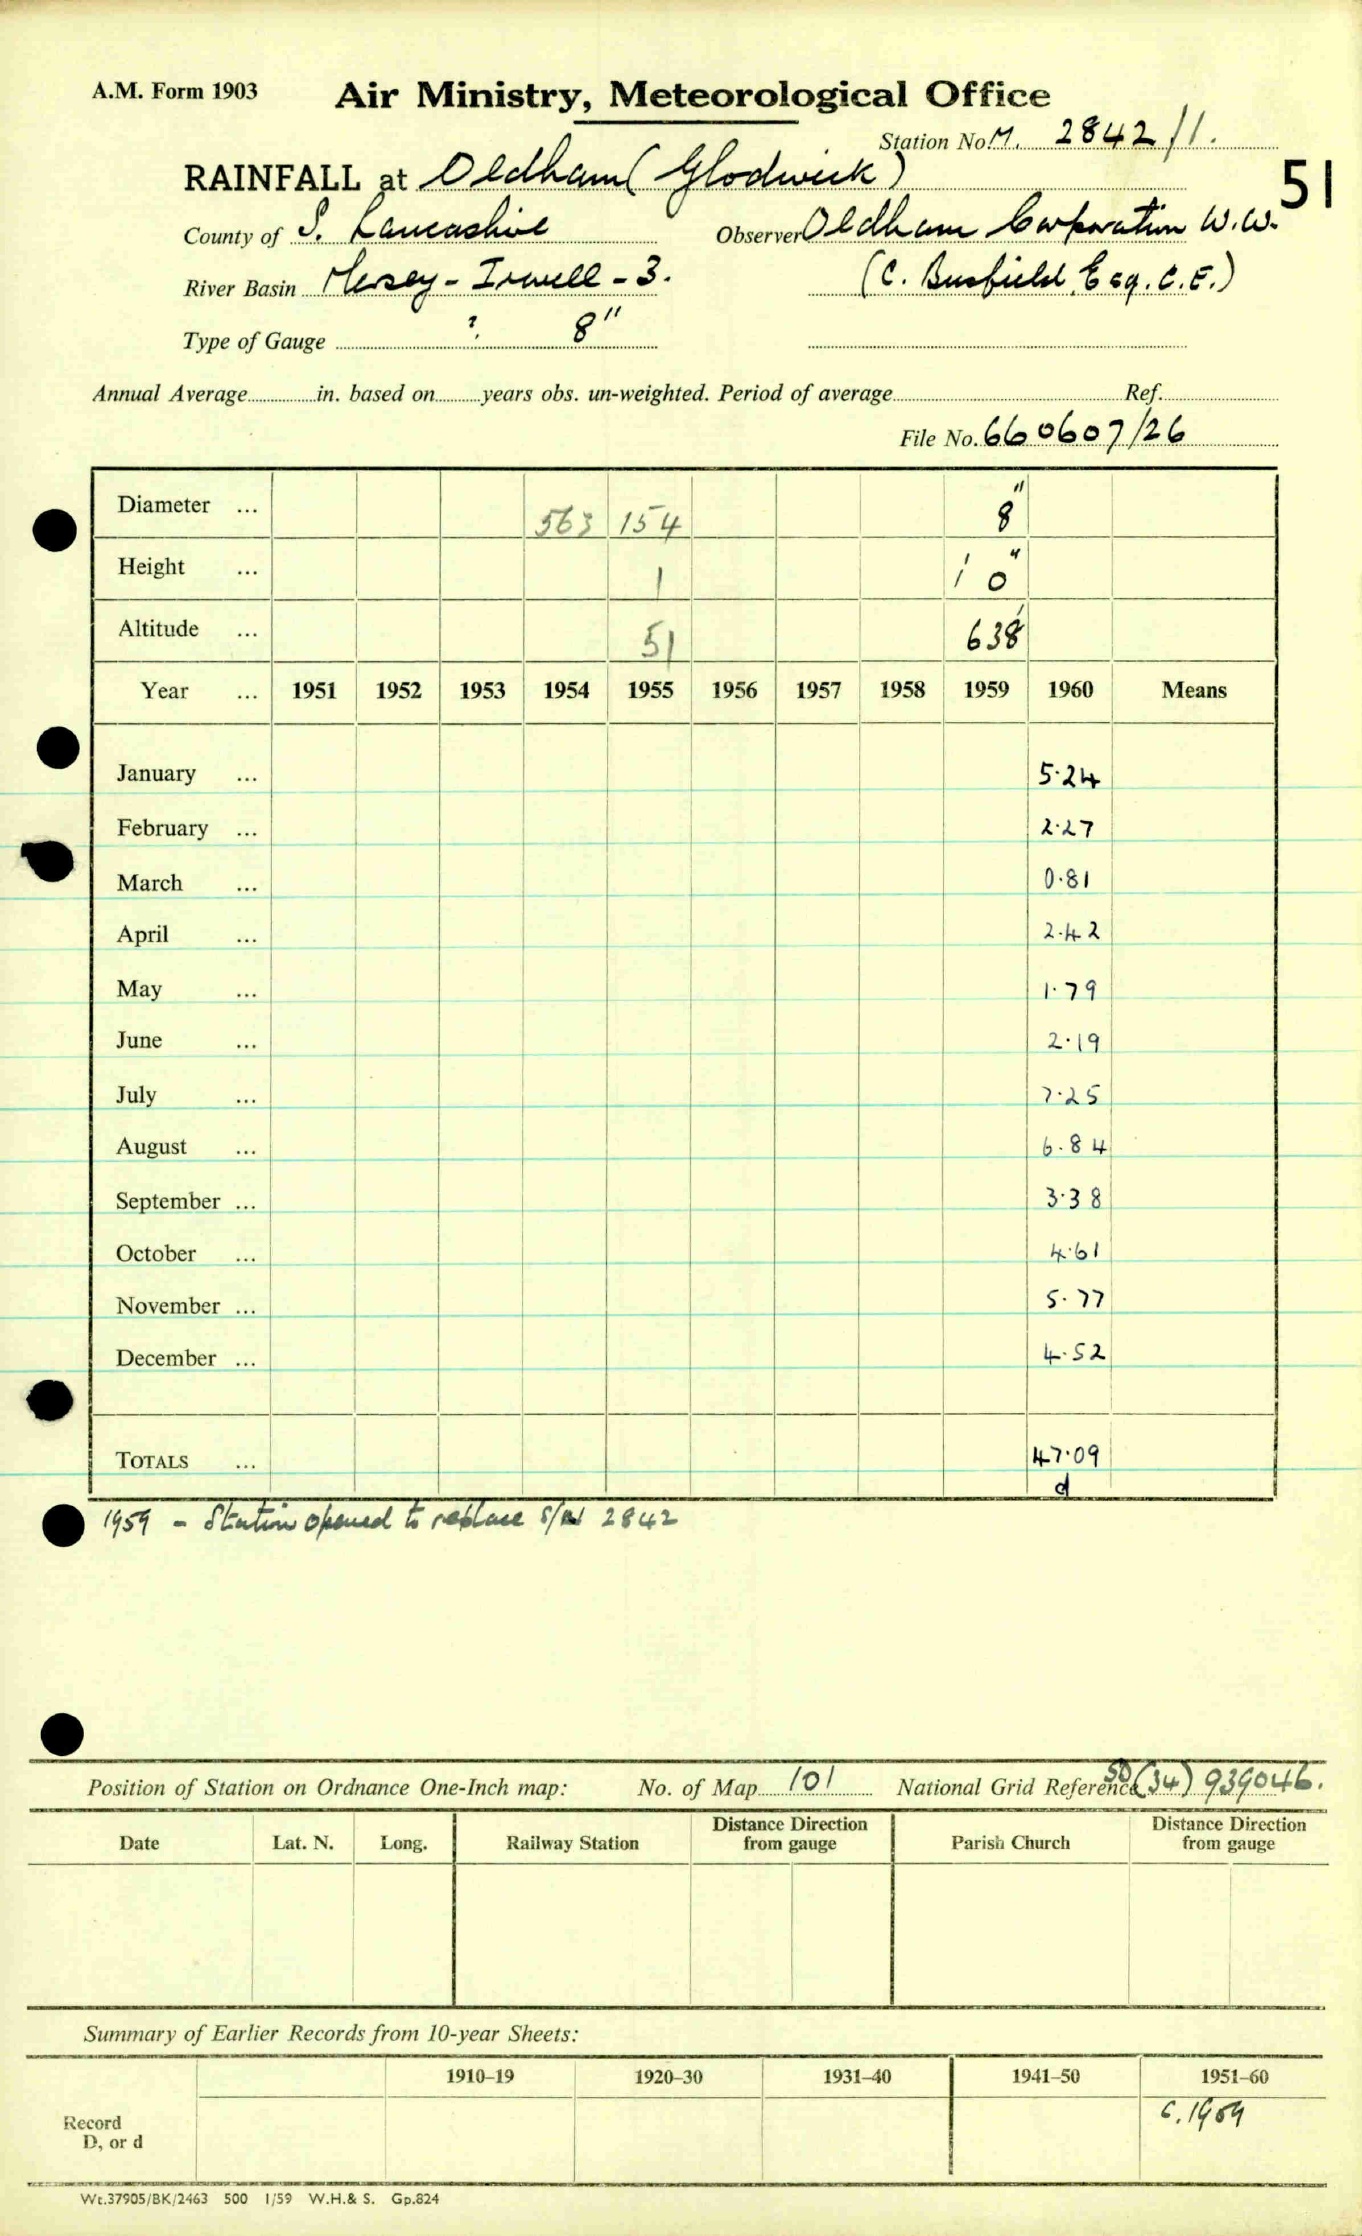 A.M. Form 1903 Air Ministry, Meteorological Office
Station No. M. 2842/1.
RAINFALL at Oldham (Glodwick) 51
County of S. Lancashire Observer Oldham Corporation W.W.
River Basin Mersey - Irwell - 3. (C. Busfield, Esq. C.E.)
Type of Gauge ? 8"
Annual Average in. based on years obs. un-weighted. Period of average Ref.
File No. 660607/26
Diameter ... 563 154 8"
Height ... 1 1' 0"
Altitude ... 51 638'
Year ... 1951 1952 1953 1954 1955 1956 1957 1958 1959 1960 Means
January ... 5.24
February ... 2.27
March ... 0.81
April ... 2.42
May ... 1.79
June ... 2.19
July ... 7.25
August ... 6.84
September ... 3.38
October ... 4.61
November ... 5.77
December ... 4.52
TOTALS ... 47.09
d
1959 - Station opened to replace 2842
Position of Station on Ordnance One-Inch map: No. of Map 101 National Grid Reference SD (34) 939046.
Date Lat. N. Long. Railway Station Distance Direction from gauge Parish Church Distance Direction from gauge
Summary of Earlier Records from 10-year Sheets:
1910–19 1920–30 1931–40 1941–50 1951–60
Record c. 1959
D, or d
Wt.37905/BK/2463 500 1/59 W.H.& S. Gp.824